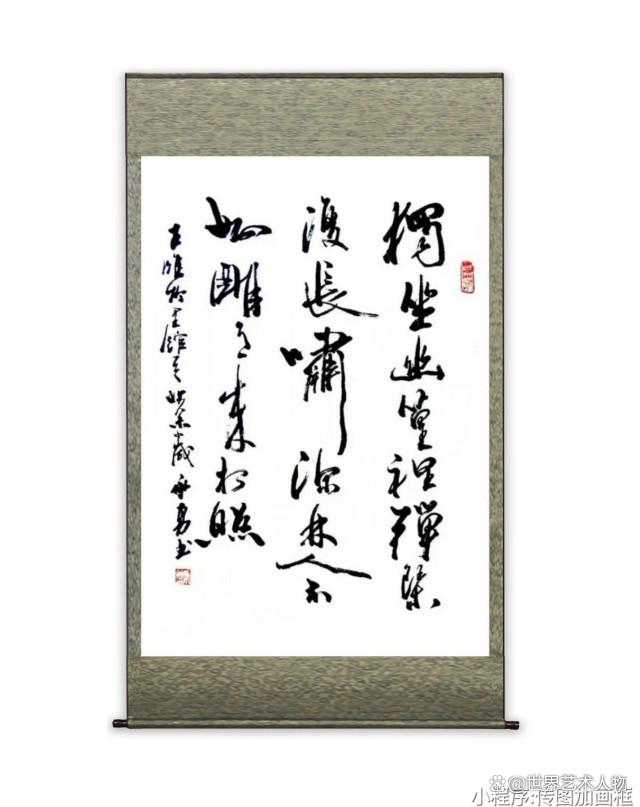 獨坐幽篁裡彈琴
復長嘯深林人不
知明月來相照
王維竹里館 歲 勇書
世界艺术人物
小程序:传图加画框